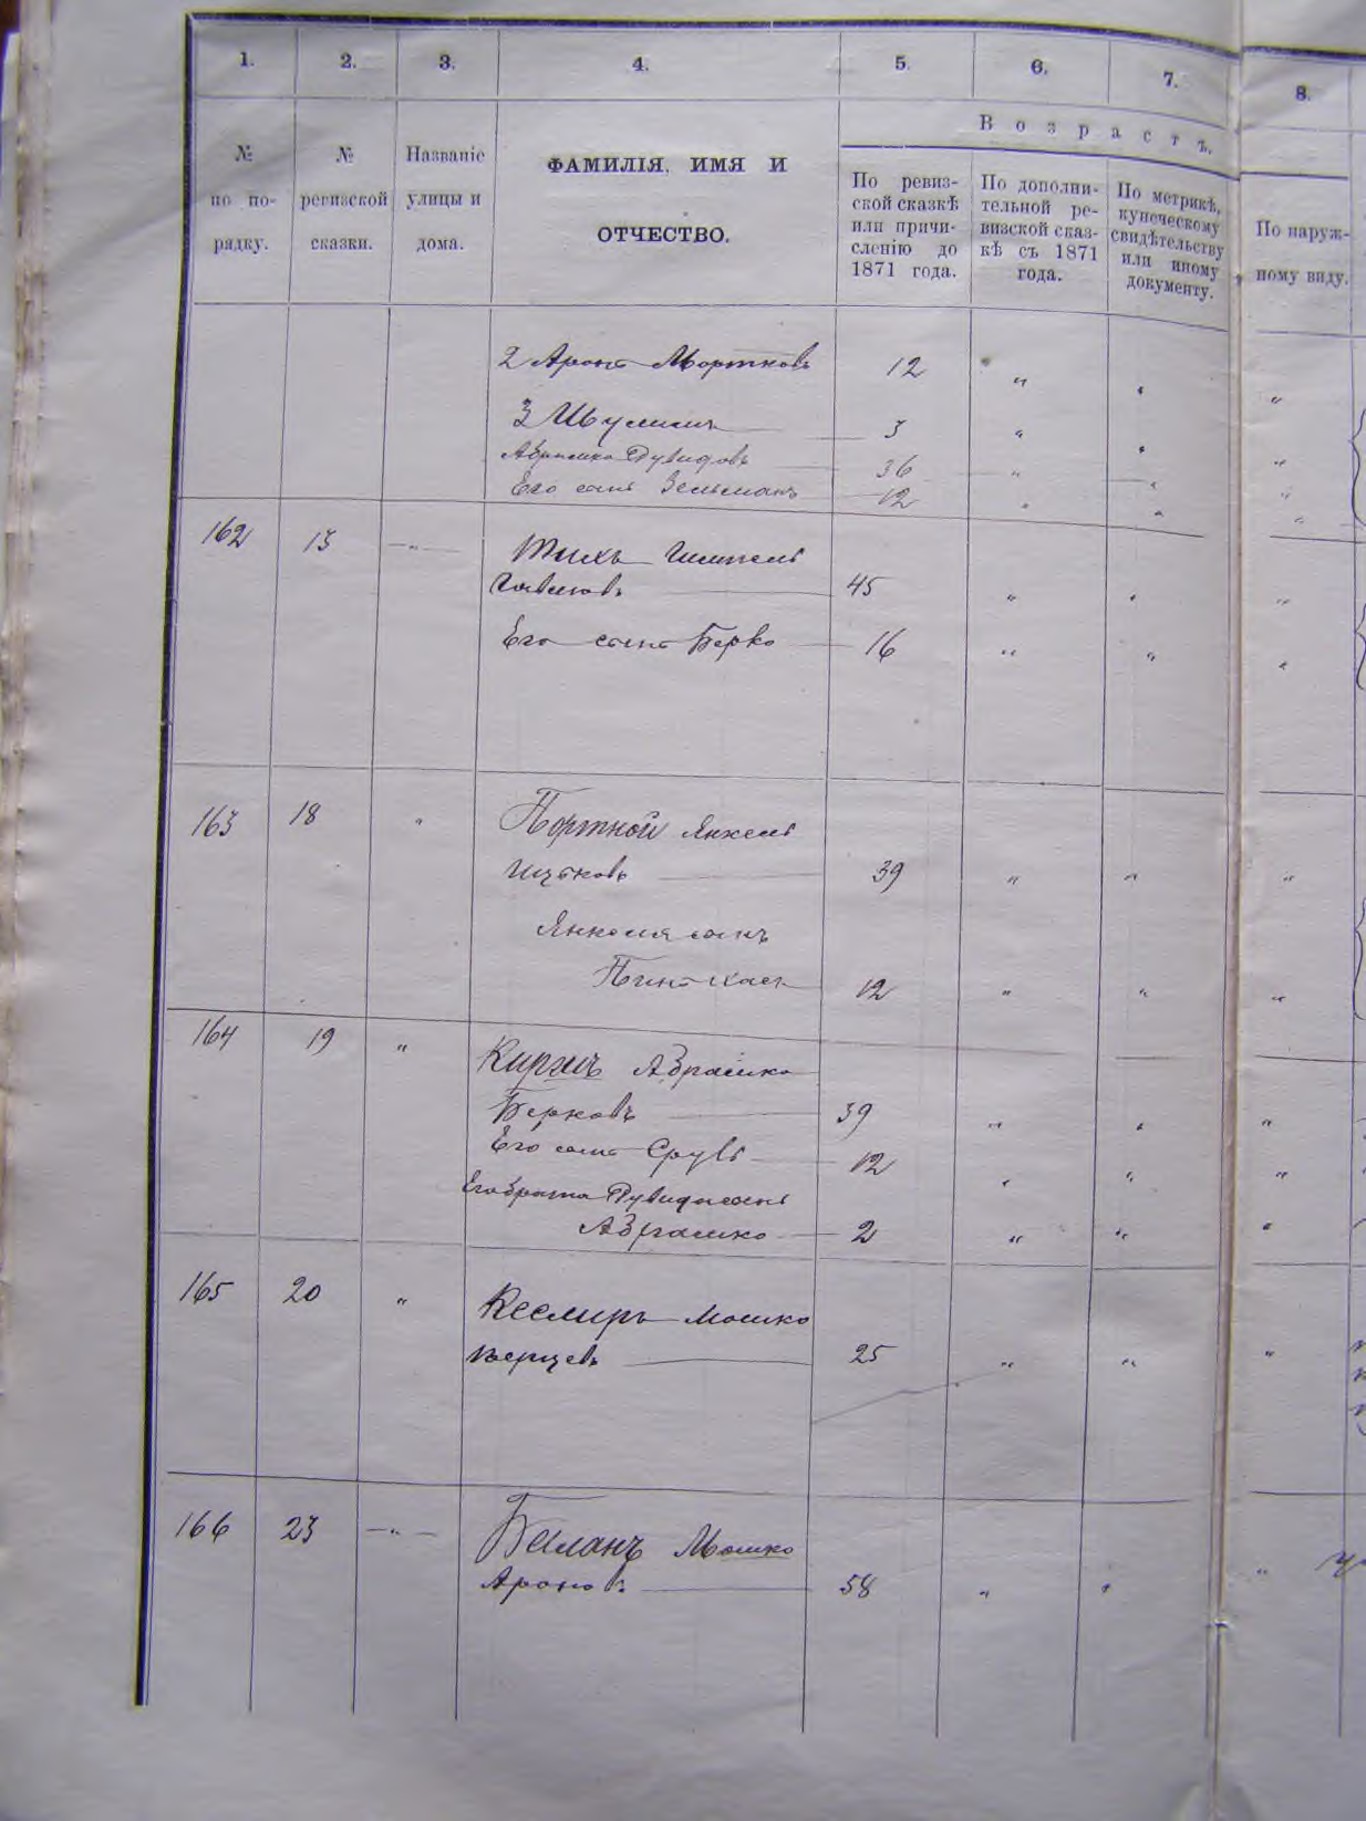 1. 2. 3. 4. 5. 6. 7. 8.
№ по по-рядку.
№ ревизской сказки.
Названіе улицы и дома.
ФАМИЛІЯ, ИМЯ И
ОТЧЕСТВО.
Возрастъ.
По ревиз-
ской сказкѣ
или причи-
сленію до
1871 года.
По дополни-
тельной ре-
визской сказ-
кѣ съ 1871
года.
По метрикѣ,
купеческому
свидѣтельству
или иному
документу.
По наруж-
ному виду.
2 Аронъ Мортковъ 12 " " "
3 Шулимъ 3 " " "
Абрамко Дувидовъ 36 " " "
Его сынъ Зельманъ 12 " " "
162 13 " Шимпель
45 " " "
Его сынъ Берко 16 " " "
163 18 " Портной Янкель
Ицковъ 39 " " "
Янкеля сынъ
Пинхас 12 " " "
164 19 " Абрамко
Берковъ 39 " " "
Его сынъ Сруль 12 " " "
Его брата Дувида сынъ
Абрамко 2 " " "
165 20 " Кеслиръ Мошко
Герцевъ 25 " " "
166 23 " Баланъ Мошко
Ароновъ 58 " " "